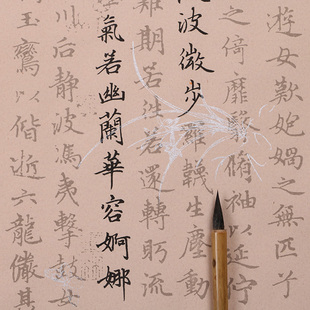 遊女歎匏媧之無匹兮
之倚靡翳脩袖以延佇
波微步羅韈生塵動
難期若往若還轉眄流
氣若幽蘭華容婀娜
川后靜波馮夷擊鼓女
玉鸞以偕逝六龍儼其